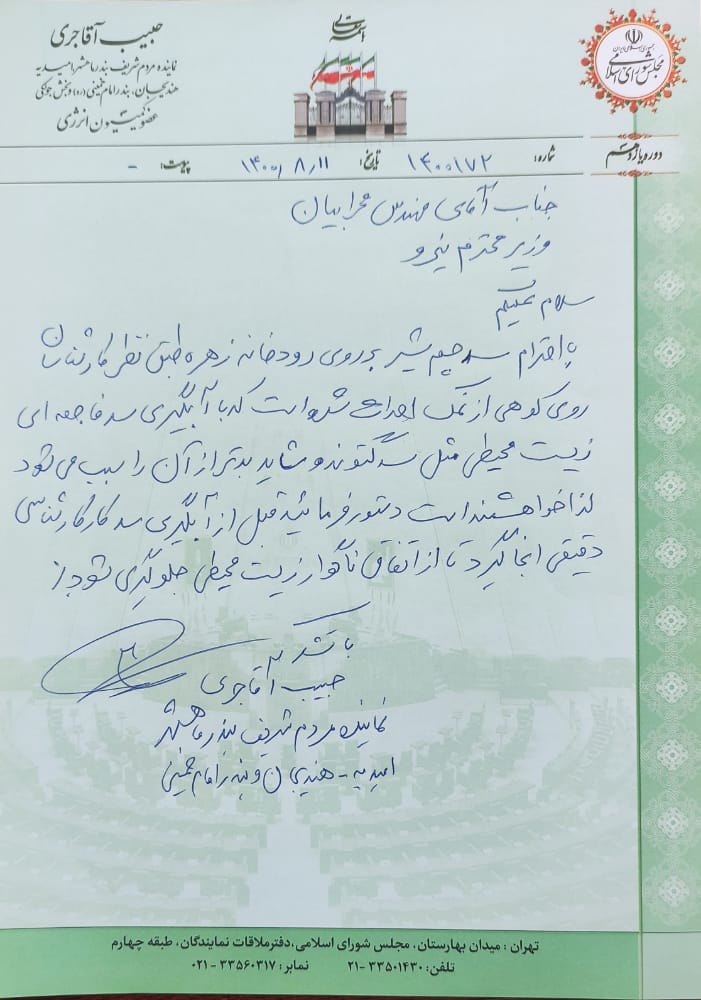 باسمه تعالی
جمهوری اسلامی ایران
مجلس شورای اسلامی
حبیب آقاجری
نماینده مردم شریف بندر ماهشهر، امیدیه
هندیجان، بندر امام خمینی (ره) و بخش جولکی
عضو کمیسیون انرژی
دوره یازدهم
شماره: ۱۴۰۰۱۷۲ تاریخ: ۱۴۰۰/۸/۱۱ پیوست: -
جناب آقای مهندس محرابیان
وزیر محترم نیرو
سلام علیکم
با احترام سد چم شیر بر روی رودخانه زهره طبق نظر کارشناسان
روی کوهی از نمک احداث شده است که با آبگیری سد فاجعه ای
زیست محیطی مثل سد گتوند و شاید بدتر از آن را سبب می شود
لذا خواهشمند است دستور فرمائید قبل از آبگیری سد کار کارشناسی
دقیقی انجام گیرد تا از اتفاق ناگوار زیست محیطی جلوگیری شود
با تشکر
حبیب آقاجری
نماینده مردم شریف بندر ماهشهر
امیدیه - هندیجان و بندر امام خمینی
تهران : میدان بهارستان، مجلس شورای اسلامی، دفتر ملاقات نمایندگان، طبقه چهارم
تلفن: ۳۳۵۰۱۴۳۰ -۲۱ نمابر: ۳۳۵۶۰۳۱۷ - ۰۲۱